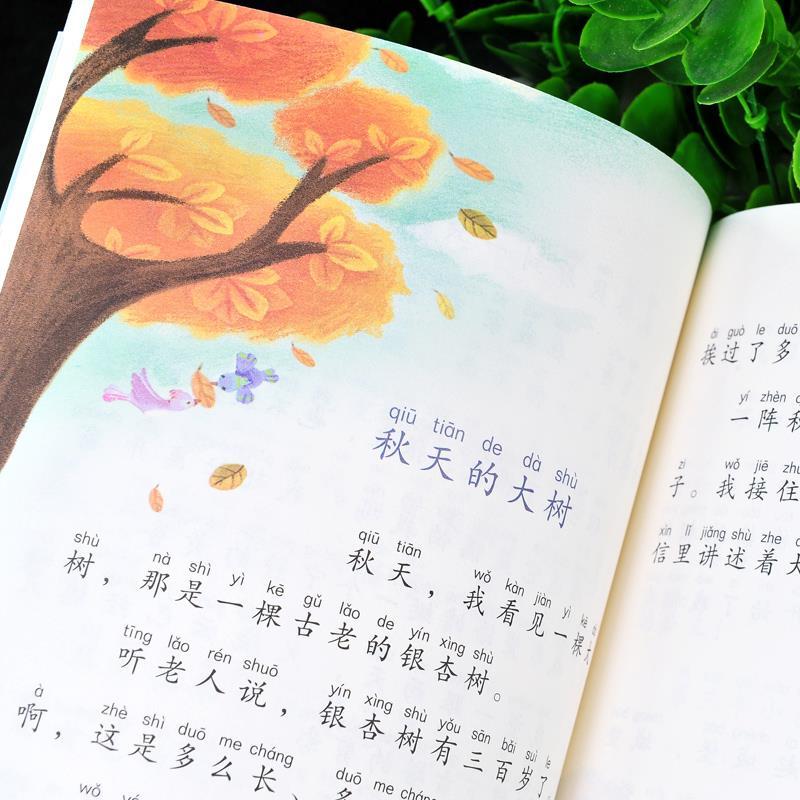 qiū tiān de dà shù
秋天的大树
qiū tiān wǒ kàn jiàn yì kē
秋天，我看见一棵
shù nà shì yì kē gǔ lǎo de yín xìng shù
树，那是一棵古老的银杏树。
tīng lǎo rén shuō yín xìng shù yǒu sān bǎi suì le
听老人说，银杏树有三百岁了
à zhè shì duō me cháng duō me cháng
啊，这是多么长、
wǒ
ǎi guò le duō
挨过了多
yí zhèn
一阵秋
zi wǒ jiē zhù
子。我接住
xìn lǐ jiǎng shù zhe
信里讲述着